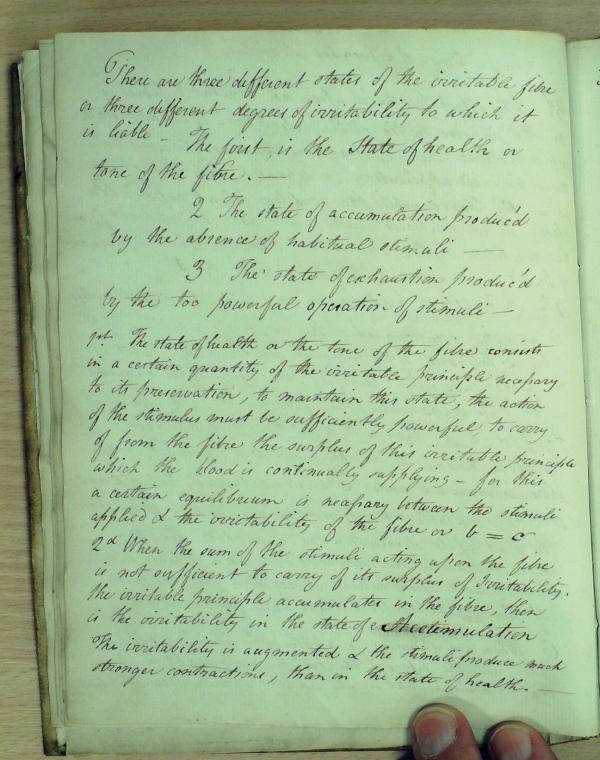 There are three different states of the irritable fibre
or three different degrees of irritability to which it
is liable - The first, is the State of health or
tone of the fibre. —
2 The state of accumulation produc'd
by the absence of habitual stimuli —
3 The state of exhaustion produc'd
by the too powerful operation of stimuli —
1st The state of health or the tone of the fibre consists
in a certain quantity of the irritable principle necessary
to its preservation, to maintain this state, the action
of the stimulus must be sufficiently powerful to carry
of from the fibre the surplus of this irritable principle
which the blood is continually supplying - for this
a certain equilibreum is necessary between the stimuli
applied & the irritability of the fibre or b = c
2d When the sum of the stimuli acting upon the fibre
is not sufficient to carry of its surplus of Irritability.
the irritable principle accumulates in the fibre, then
is the irritability in the state of
The irritability is augmented & the stimuli produce much
stronger contractions, than in the state of health. —